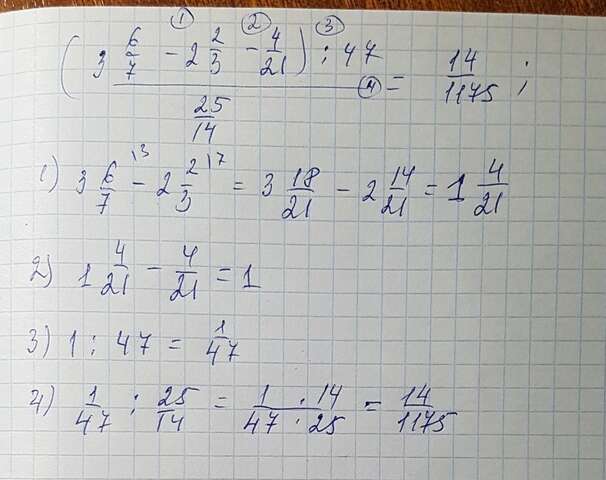 ① ② ③
(3 6/7 − 2 2/3 − 4/21) : 47 ④ = 14/1175 ;
25/14
1) 3 6/7 ¹³ − 2 2/3 ¹⁷ = 3 18/21 − 2 14/21 = 1 4/21
2) 1 4/21 − 4/21 = 1
3) 1 : 47 = 1/47
4) 1/47 : 25/14 = 1 · 14/47 · 25 = 14/1175